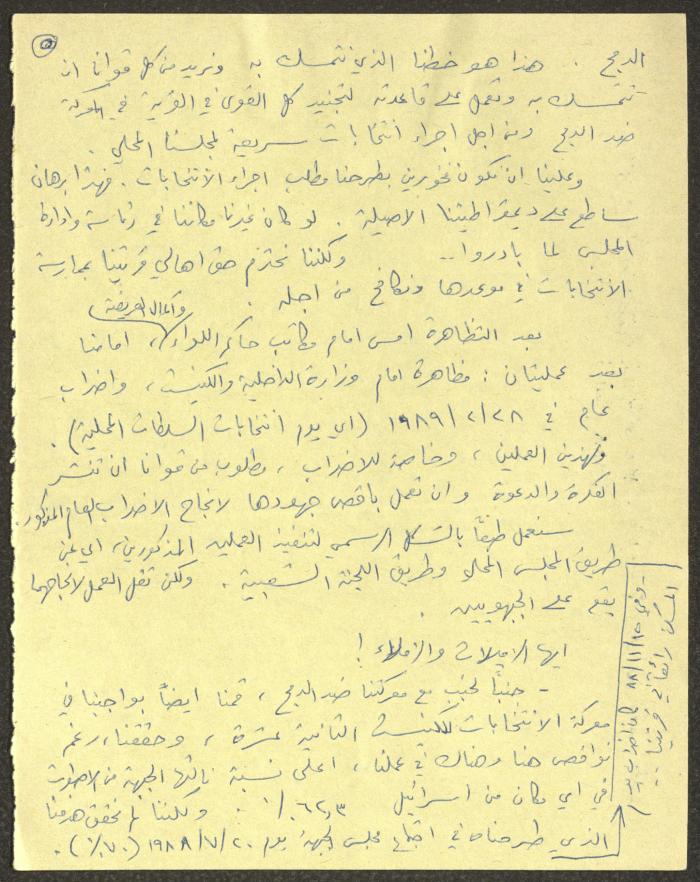 ٥
الدمج . هذا هو خطنا الذي نتمسك به ونريد من كل قوانا ان
تتمسك به وتعمل على قاعدته لتجنيد كل القوى في القرية في المعركة
ضد الدمج ومن اجل اجراء انتخابات سريعة لمجلسنا المحلي .
وعلينا ان نكون فخورين بطرحنا مطلب اجراء الانتخابات . فهذا برهان
ساطع على ديمقراطيتنا الاصيلة . لو كان غيرنا مكاننا في رئاسة وادارة
المجلس لما بادروا .. ولكننا نحترم حق اهالي قريتنا بممارسة
الانتخابات في موعدها ونكافح من اجله .
واعمال العريضة
بعد التظاهرة امس امام مكاتب حاكم اللواء ، امامنا
بعد عمليتان : مظاهرة امام وزارة الداخلية والكنيست ، واضراب
عام في ١٩٨٩/٢/٢٨ (اي يوم انتخابات السلطات المحلية) .
ولهذين العملين ، وخاصة للاضراب ، مطلوب من قوانا ان تنشر
الفكرة والدعوة وان تعمل باقصى جهودها لانجاح الاضراب العام المذكور .
سنعمل طبعاً بالشكل الرسمي لتنفيذ العملين المذكورين ، اي عن
طريق المجلس المحلي وطريق اللجنة الشعبية . ولكن ثقل العمل لانجاحهما
يقع على الجبهويين .
ايها الرفيقات والرفاق !
- جنباً لجنب مع معركتنا ضد الدمج ، قمنا ايضاً بواجبنا في
معركة الانتخابات للكنيست الثانية عشرة ، وحققنا ، رغم
نواقص هنا وهناك في عملنا ، اعلى نسبة نالتها الجبهة من الاصوات
في اي مكان من اسرائيل ٦٢,٣٪ . ولكننا لم نحقق هدفنا
الذي طرحناه في اجتماع مجلس الجبهة يوم ١٩٨٨/٧/٢٠ (٧٠٪) .
- وفي ٨٨/١١/١٥ كان اضراب
المسكن رائعاً في قريتنا ..